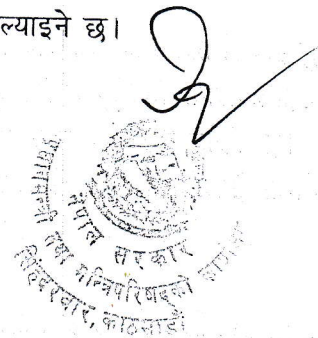 ल्याइने छ।
नेपाल सरकार
प्रधानमन्त्री तथा मन्त्रिपरिषद्को कार्यालय
सिंहदरबार, काठमाडौं